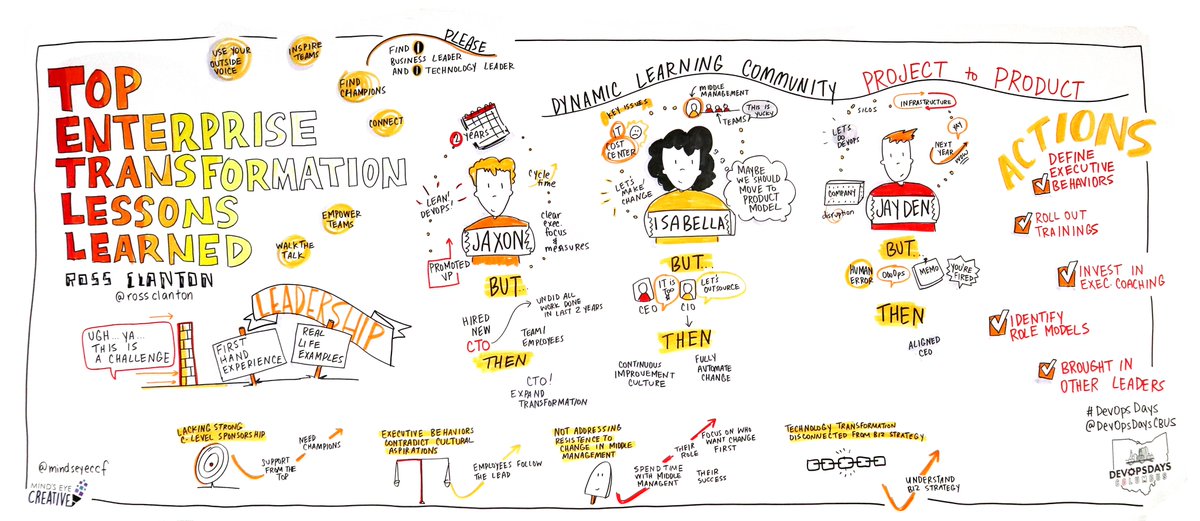 TOP
ENTERPRISE
TRANSFORMATION
LESSONS
LEARNED
ROSS CLANTON
@rossclanton
USE YOUR
OUTSIDE
VOICE
INSPIRE
TEAMS
FIND
CHAMPIONS
CONNECT
EMPOWER
TEAMS
WALK THE
TALK
PLEASE
FIND 1
BUSINESS LEADER
AND 1 TECHNOLOGY LEADER
LEADERSHIP
UGH... YA...
THIS IS
A CHALLENGE
FIRST
HAND
EXPERIENCE
REAL
LIFE
EXAMPLES
2 YEARS
LEAN,
DEVOPS!
cycle
time
clear
exec.
focus
&
measures
JAXON
PROMOTED
VP
BUT...
HIRED
NEW
CTO
UNDID ALL
WORK DONE
IN LAST 2 YEARS
TEAM/
EMPLOYEES
THEN
CTO!
EXPAND
TRANSFORMATION
DYNAMIC LEARNING COMMUNITY
KEY ISSUES
IT
COST
CENTER
MIDDLE
MANAGEMENT
TEAMS
THIS IS
YUCKY
LET'S
MAKE
CHANGE
MAYBE
WE SHOULD
MOVE TO
PRODUCT
MODEL.
ISABELLA
BUT...
CEO
IT IS
TOO
$
CIO
LET'S
OUTSOURCE
THEN
CONTINUOUS
IMPROVEMENT
CULTURE
FULLY
AUTOMATE
CHANGE
PROJECT to PRODUCT
SILOS
INFRASTRUCTURE
LET'S
DO
DEVOPS
YAY
NEXT
YEAR
COMPANY
disruption
JAYDEN
BUT...
HUMAN
ERROR
OOOPS
MEMO
YOU'RE
FIRED!
THEN
ALIGNED
CEO
ACTIONS
DEFINE
EXECUTIVE
BEHAVIORS
ROLL OUT
TRAININGS
INVEST IN
EXEC COACHING
IDENTIFY
ROLE MODELS
BROUGHT IN
OTHER LEADERS
LACKING STRONG
C-LEVEL SPONSORSHIP
SUPPORT
FROM THE
TOP
NEED
CHAMPIONS
EXECUTIVE BEHAVIORS
CONTRADICT CULTURAL
ASPIRATIONS
EMPLOYEES FOLLOW
THE LEAD
NOT ADDRESSING
RESISTENCE TO
CHANGE IN MIDDLE
MANAGEMENT
SPEND TIME
WITH MIDDLE
MANAGMENT
THEIR
ROLE
THEIR
SUCCESS
FOCUS ON WHO
WANT CHANGE
FIRST
TECHNOLOGY TRANSFORMATION
DISCONNECTED FROM BIZ STRATEGY
UNDERSTAND
BIZ STRATEGY
@mindseyeccf
MIND'S EYE
CREATIVE
#DevOpsDays
@DevOpsDaysCBUS
DEVOPSDAYS
COLUMBUS